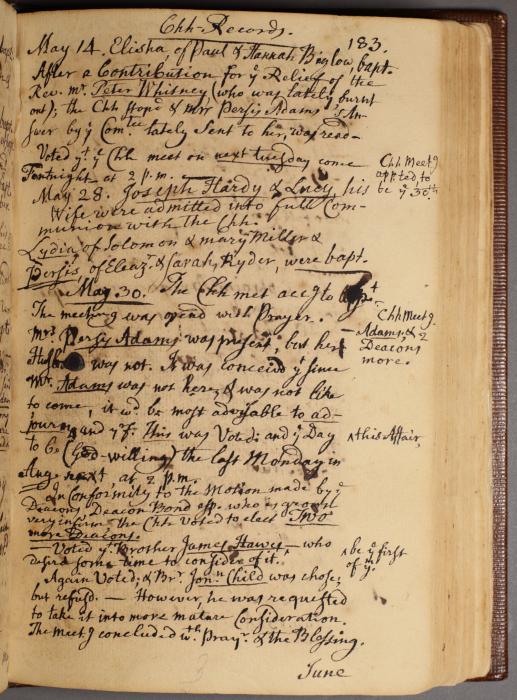 Chh-Records.
183.
May 14. Elisha of Paul & Hannah Biglow, bapt.
After a Contribution for yͤ Relief of the
Rev. mͬ. Peter Whitney (who was lately burnt
out); the Chh stopd & Mrs Persis Adams's An-
swer by yͤ Comtee lately sent to her, was read—
Voted yͭ yͤ Chh meet on next tuesday come
Fortnight at 2 p.m.
Chh Meetg
appted to
be yͤ 30th
May 28. Joseph Hardy & Lucy, his
Wife were admitted into full Com-
munion with the Chh.
Lydia, of Solomon & mary Miller &
Persis, of Eleazr. & Sarah, Ryder, were bapt.
May 30. The Chh met accgto appt
The meeting was opend with Prayer.
Chh Meetg.
—Adams, & 2
Deacons
more.
Mrs Persis Adams was present, but her
Husbd was not. It was conceivd yͭ since
Mr. Adams was not here, & was not like
to come, it wd. be most advisable to ad-
journ, and yͭ. This was Voted: and yͤ Day
^this Affair,
to be (God-willing) the last Monday in
Aug. next at 2 p.m.
In Conformity to the Motion made by yͤ
Deacons, Deacon Bond esp. who is grown
very infirm the Chh voted to elect Two
more Deacons.
—Voted yͭ. Brother James Hawes ^ who
desird some time to consider of it.
^be yͤ first
of mͫ yͭ.
Again Voted; & Br. Jonn Child was chose,
but refusd. — However, he was requested
to take it into more mature Consideration.
The meetg concluded wth Prayr. & the Blessing.
June